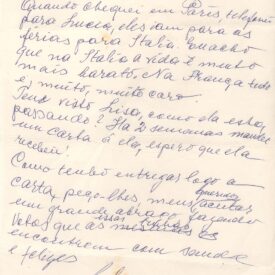 Quando cheguei em Paris, telefonei
para Lucia, eles iam para as
férias para Italia. Eu acho
que na Italia a vida é muito
mais barato. Na França tudo
é muito, muito caro.
Tem visto Lisa, como ela esta,
passando? Ha 2 semanas mandei
um carta á ela, espero que ela
recebeu!
Como tenho entregas logo a
carta, peço-lhes, meus queridos, aceitar
um grande abraço fazendo
votos que as
encontrem com saude
e felizes